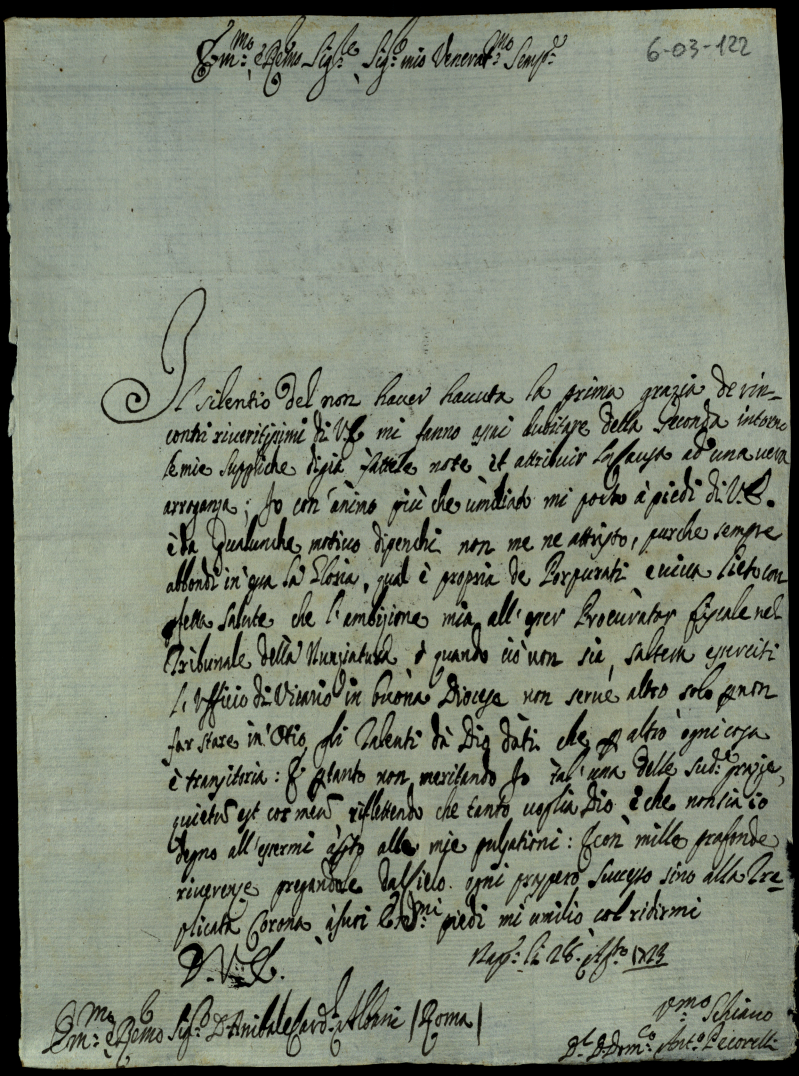 Em.mo e Re.mo Sig.re Sig.r mio Venerat.mo Semp.e
6-03-122
Il silentio del non haver havuta la prima grazia de rin-
contri riveritissimi di V.E. mi fanno assai dubitare della seconda intorno
le mie suppliche digià fattele note et attribuir la causa ad una vera
arroganza; Io con animo più che umiliato mi porto à piedi di V.E.
è da qualunche motivo dipenchi non me ne attristo, purche sempre
abbondi in qua la Gloria, qual è propria de Porpurati e viva lieto con
pfetta salute che l'ambizione mia all'esser Procurator fiscale nel
Tribunale della Nunziatura ò quando ciò non sia, saltem eserciti
l'Ufficio di Vicario in buona Diocese non serve altro solo p non
far stare in Otio gli Talenti dà Dio dati che p altro ogni cosa
è transitoria: E ptanto non meritando Io tal'una delle sud.e grazie,
quietu est cor meu riflettendo che tanto voglia Dio è che non sia io
degno all'essermi apto alle mie pulsationi: E con mille profonde
riverenze pregandole dal Cielo ogni prospero successo sino alla Tre-
plicata Corona à suoi piedi mi umilio col ridirmi
D. V. E.
Nap. li 28. Ag.to 1723
Em.mo e Re.mo Sig.r D. Anibale Card.l Albani /Roma/
V.mo Schiavo
D. Dom.co Ant.o Pecorelli